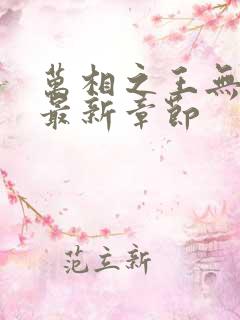 萬相之王無
最新章節
范立新